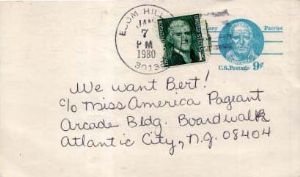 JAN
7
PM
1980
Patriot
U.S. Postage 9¢
We want Bert!
c/o Miss America Pageant
Arcade Bldg. Boardwalk
Atlantic City, N.J. 08404